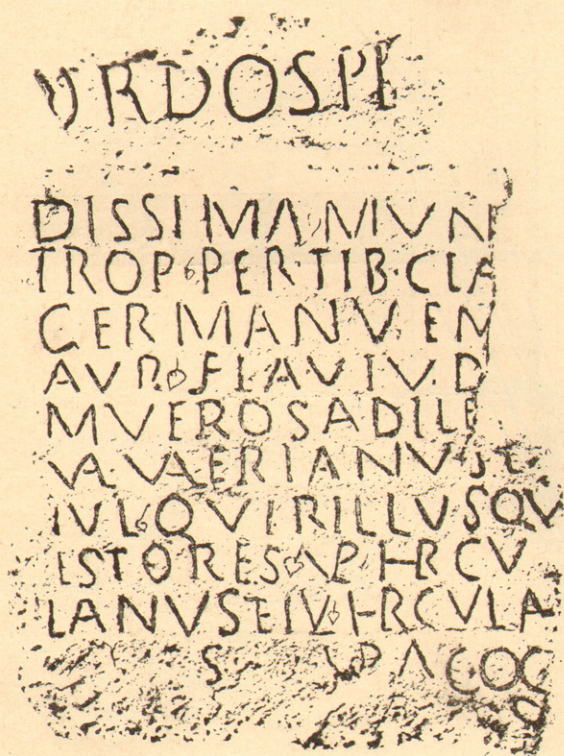 ORDOSPL
DISSIMA MVN
TROP PER·TIB·CLA
GERMANV EN
AVR FLAVIV D
MVEROSADILE
VA VAERIANVS
IVL QVIRILLVSQV
ESTORES VP HRCV
LANVSETIV HRCVLA